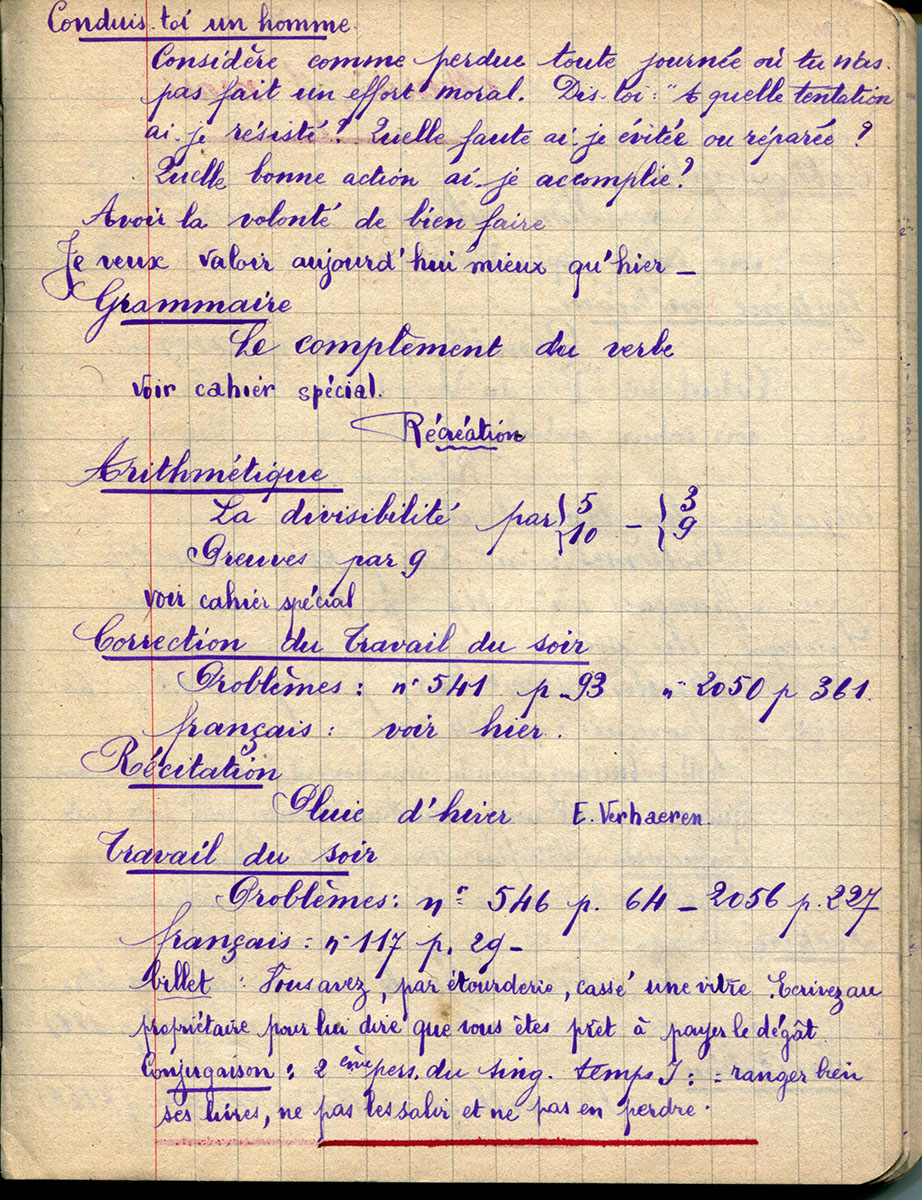 Conduis-toi un homme.
Considère comme perdue toute journée où tu n'as
pas fait un effort moral. Dis-toi : "A quelle tentation
ai-je résisté ? Quelle faute ai-je évitée ou réparée ?
Quelle bonne action ai-je accomplie ?
Avoir la volonté de bien faire
Je veux valoir aujourd'hui mieux qu'hier _
Grammaire
Le complèment du verbe
voir cahier spécial.
Récréation
Arithmétique
La divisibilité par } 5 10 - } 3 9
Preuves par 9
voir cahier spécial
Correction du travail du soir
Problèmes : n° 541 p. 93 n° 2050 p 361.
français : voir hier.
Récitation
Pluie d'hiver E. Verhaeren
Travail du soir
Problèmes : n° 546 p. 64 _ 2056 p. 227
français : n° 117 p. 29 _
billet : Vous avez, par étourderie, cassé une vitre. Ecrivez au
propriétaire pour lui dire que vous êtes prêt à payer le dégât
Conjugaison : 2ème pers. du sing. temps I : = ranger bien
ses livres, ne pas les salir et ne pas en perdre.